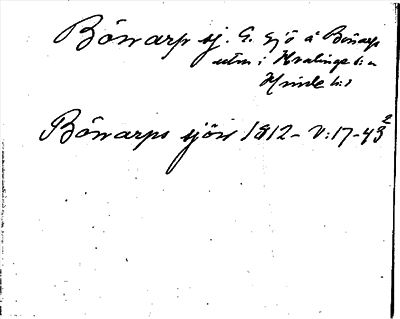 Bönarp sj. G. Sjö å Bonarps
utm. i Hvalinge s:n
Himle h:d
Bönarps sjön 1812 - V:17-43²